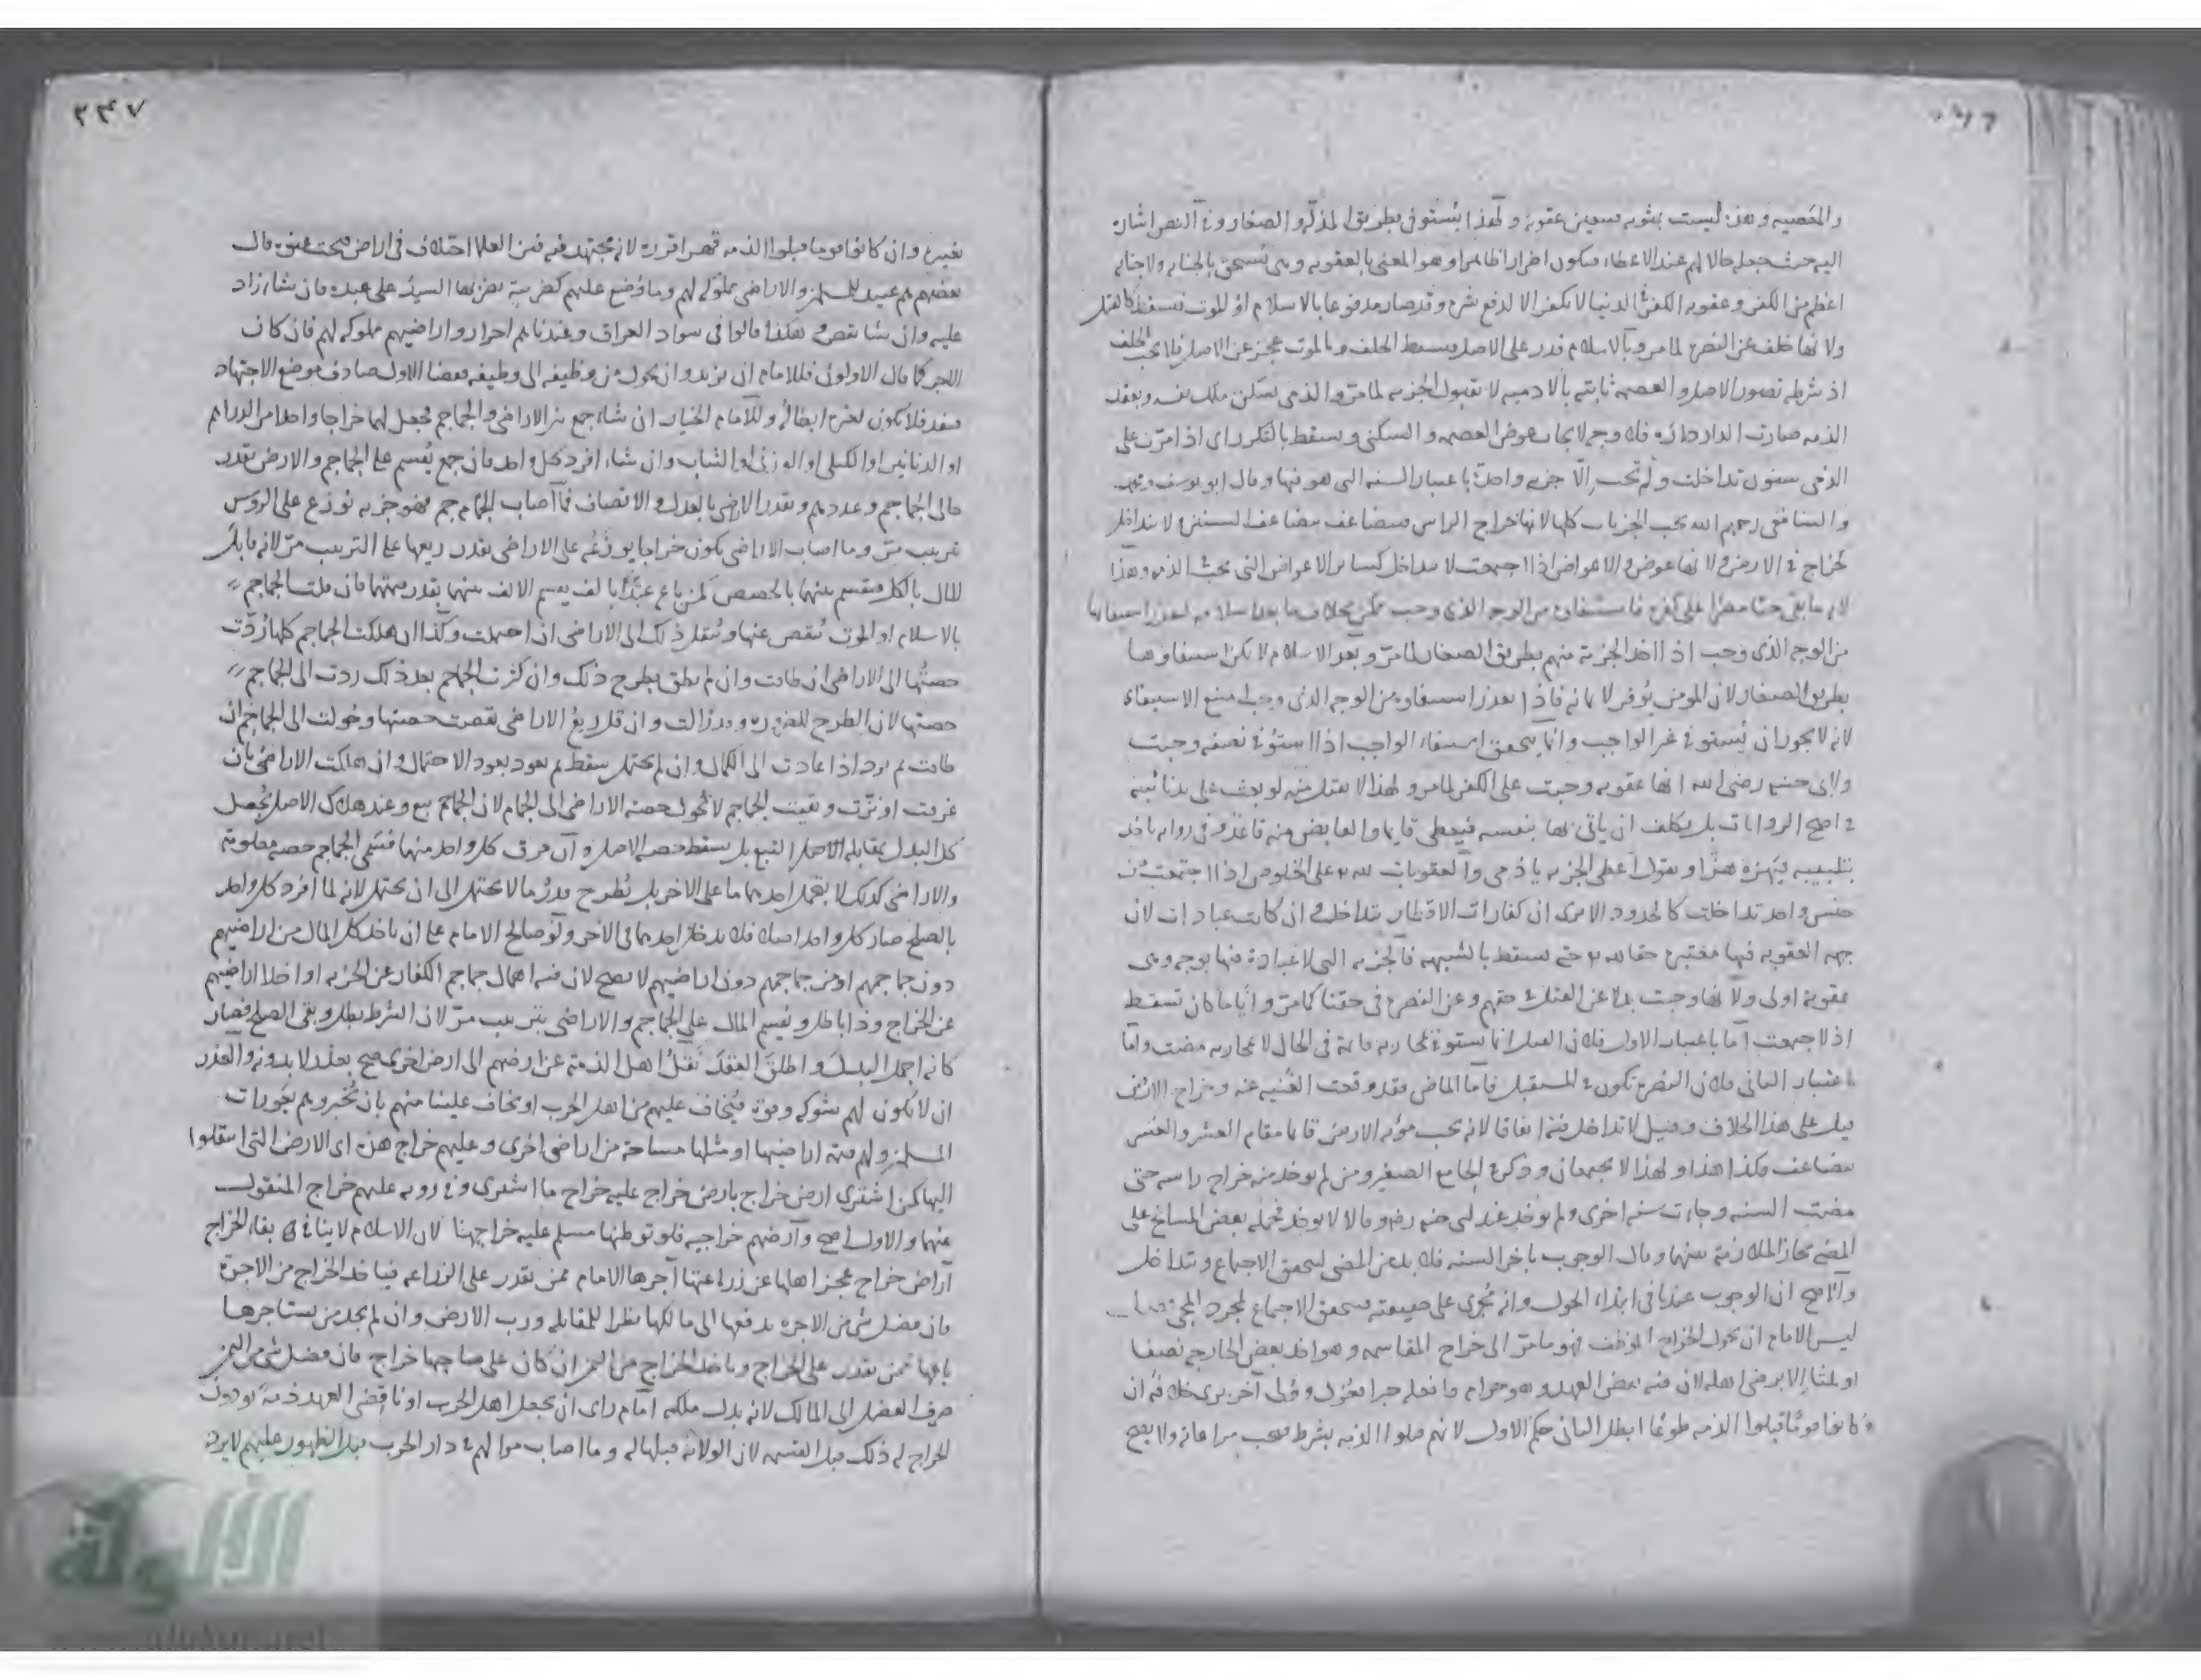 والمعصيه وهذه ليست بمثوبه فتعين عقوبة ولهذا يستوفى بطريق المذلة والصغار وفي النص اشاره
اليه حيث جعله حالا لهم عند الاعطاء فيكون اضرارا ظاهرا وهو المعنى بالعقوبه وهى تستحق بالجنايه ولا جنايه
اعظم من الكفر وعقوبه الكفر في الدنيا لا تكون الا لدفع شره وقد صار مدفوعا بالاسلام او الموت فتسقط كالقتل
ولانها خلف عن النصره لما مر وبالاسلام قدر على الاصل فيسقط الخلف وبالموت عجز عن الاصل فلا يجب الخلف
اذ شرطه تصور الاصل والعصمه ثابته بالادميه لا بقبول الجزيه لما مر والذمى يسكن ملك نفسه وبعقد
الذمه صارت الدار داره فلا وجه لايجاب عوض العصمه والسكنى وتسقط بالتكرر اى اذا مرت على
الذمى سنون تداخلت ولم تجب الا جزيه واحدة باعتبار السنه التى هو فيها وقال ابو يوسف ومحمد
والشافعى رحمهم الله تجب الجزيات كلها لانها خراج الراس فيتضاعف بتضاعف السنين ولا يتداخل
كخراج الارض ولانها عوض والاعواض اذا اجتمعت لا تتداخل كسائر الاعواض التى تجب في الذمه وهذا
لانه ما بقى حيا مصرا على كفره فاستيفاوه من الوجه الذى وجب ممكن بخلاف ما بعد اسلامه لتعذر استيفائها
من الوجه الذى وجب اذا اخذ الجزية منهم بطريق الصغار لما مر وبعد الاسلام لا يمكن استيفاوها
بطريق الصغار لان المومن يوقر لايمانه فاذا تعذر استيفاوه من الوجه الذى وجب امتنع الاستيفاء
لانه لا يجوز ان يستوفى غير الواجب وانما يتحقق استيفاء الواجب اذا استوفى بصفه وجبت
ولابى حنيفه رضى الله انها عقوبه وجبت على الكفر لما مر ولهذا لا تقبل منه لو بعث على يد نائبه
في اصح الروايات بل يكلف ان ياتى بها بنفسه فيعطى قايما والقابض منه قاعد وفى روايه ياخذ
بتلبيبه فيهزه هزا ويقول اعطى الجزيه يا ذمى والعقوبات لله على الخلوص اذا اجتمعت من
جنس واحد تداخلت كالحدود الا ترى ان كفارات الافطار تتداخل وان كانت عبادات لان
جهه العقوبه فيها معتبره حقا لله حتى تسقط بالشبهه فالجزيه التى لا عبادة فيها بوجه وهى
عقوبة اولى ولانها وجبت بدلا عن القتل في حقهم وعن النصره فى حقنا كما مر واياما كان تسقط
اذا اجتمعت اما باعتبار الاول فلان القتل انما يستوفى لمحاربه قايمة فى الحال لا لمحاربه مضت واما
باعتبار الثانى فلان النصره تكون في المستقبل فاما الماضى فقد وقعت الغنيه عنه وخراج الارض
قيل على هذا الخلاف وقيل لا تداخل فيه اتفاقا لانه يجب مؤنه الارض قايما مقام العشر والعشر
يتضاعف فكذا هذا ولهذا لا يجتمعان وذكر في الجامع الصغير ومن لم يوخذ منه خراج راسه حتى
مضت السنه وجاءت سنه اخرى ولم يوخذ عند ابى حنيفه وقالا يوخذ فحمله بعض المشايخ على
المضى مجازا لملازمة بينهما وقال الوجوب باخر السنه فلا بد من المضى ليتحقق الاجتماع وتتداخل
والاصح ان الوجوب عندنا فى ابتداء الحول وانه مجرى على حقيقته فيتحقق الاجتماع لمجرد المجى
ليس للامام ان يحول الخراج الموظف وهو ما مر الى خراج المقاسمه وهو اخذ بعض الخارج نصفا
او ثلثا الا برضى اهله لان فيه نقض العهد وهو حرام فان فعله جبرا فعزل وولى آخر يرى خلافه ان
كانوا قوما قبلوا الذمه طوعا ابطل الثانى حكم الاول لانهم قبلوا الذمه بشرط فتجب مراعاته ولا يصح
٢٣٧
تغييره وان كانوا قوما قبلوا الذمه قهرا اقره لانه مجتهد فيه فبين العلما اختلاف فى اراض فتحت عنوه قال
بعضهم هم عبيد للمسلمين والاراضى مملوكه لهم وما وضع عليهم كضريبة يضربها السيد على عبده فان شاء زاد
عليه وان شا نقص هكذا قالوا فى سواد العراق وعندنا هم احرار واراضيهم مملوكه لهم فان كان
الامر كما قال الاولون فللامام ان يزيد وان يحول من وظيفه الى وظيفه فقضا الاول صادف موضع الاجتهاد
فنفد فلا يكون لغيره ابطاله وللامام الخيار ان شاء جمع بين الاراضى والجماجم فجعل لهما خراجا واحدا من الدراهم
او الدنانير او الكيلى او الوزنى او الثياب وان شاء افرد كل واحد فان جمع يقسم على الجماجم والارض بقدر
حال الجماجم وعددهم وبقدر الارض بالعدل والانصاف فما اصاب الجماجم فهو جزيه توزع على الروس
بترتيب مر وما اصاب الاراضى يكون خراجا يوزعه على الاراضى بقدر ريعها على الترتيب مر لانه قابل
المال بالكل فيقسم بينهما بالحصص كمن باع عبدا بالف يقسم الالف بينهما بقدر قيمتهما فان قلت الجماجم
بالاسلام او الموت تنقص عنها وتنقل ذلك الى الاراضى ان احتملت وكذا ان هلكت الجماجم كلها ردت
حصتها الى الاراضى ان طاقت وان لم تطق يطرح ذلك وان كثرت الجماجم بعد ذلك ردت الى الجماجم
حصتها لان الطرح للضروره وقد زالت وان قل ريع الاراضى نقصت حصتها وحولت الى الجماجم ان
طاقت ثم ترد اذا عادت الى الكمال وان لم يحتمل سقط ثم يعود بعود الاحتمال وان هلكت الاراضى بان
غرقت او نزت وبقيت الجماجم لا تحول حصه الاراضى الى الجماجم لان الجماجم تبع وعند هلاك الاصل يجعل
كل البدل بمقابله الاصل لا التبع بل يسقط حصه الاصل وان فرق كل واحد منها فسمى الجماجم حصه معلومة
والاراضى كذلك لا يحمل احدهما ما على الاخر بل يطرح قدر ما لا يحتمل الى ان يحتمل لانه لما افرد كل واحد
بالصلح صار كل واحد اصلا فلا يدخل احدهما فى الاخر ولو صالح الامام على ان ياخذ كل المال من اراضيهم
دون جماجمهم او من جماجمهم دون اراضيهم لا يصح لان فيه اهمال جماجم الكفار عن الجزيه او اخلا اراضيهم
عن الخراج وذا باطل ويقسم المال على الجماجم والاراضى بترتيب مر لان الشرط بطل وبقى الصلح فصار
كانه اجمل البدل واطلق العقد نقل اهل الذمة عن ارضهم الى ارض اخرى صح بعذر لا بدونه والعذر
ان لا يكون لهم شوكه وقوه فيخاف عليهم من اهل الحرب او نخاف علينا منهم بان يخبروهم بعورات
المسلمين ولهم قيمة اراضيها او مثلها مساحة من اراضى اخرى وعليهم خراج هذه اى الارض التى انتقلوا
اليها كمن اشترى ارض خراج بارض خراج عليه خراج ما اشترى وفي روايه عليهم خراج المنقول
عنها والاول اصح وارضهم خراجيه فلو توطنها مسلم عليه خراجها لان الاسلام لا ينافى بقاء الخراج
اراض خراج عجز اهلها عن زراعتها اجرها الامام ممن يقدر على الزراعه فياخذ الخراج من الاجرة
فان فضل شى من الاجره يدفعها الى مالكها نظرا للمقابله ورب الارض وان لم يجد من يستاجرها
باعها ممن يقدر على الخراج وياخذ الخراج من الثمن ان كان على صاحبها خراج فان فضل شى من الثمن
صرف الفضل الى المالك لانه بدل ملكه امام راى ان يجعل اهل الحرب او ناقضى العهد ذمة يودون
الخراج له ذلك قبل القسمه لان الولاية قبلها له وما اصاب موالهم في دار الحرب قبل الظهور عليهم لا يرد
الألوكة